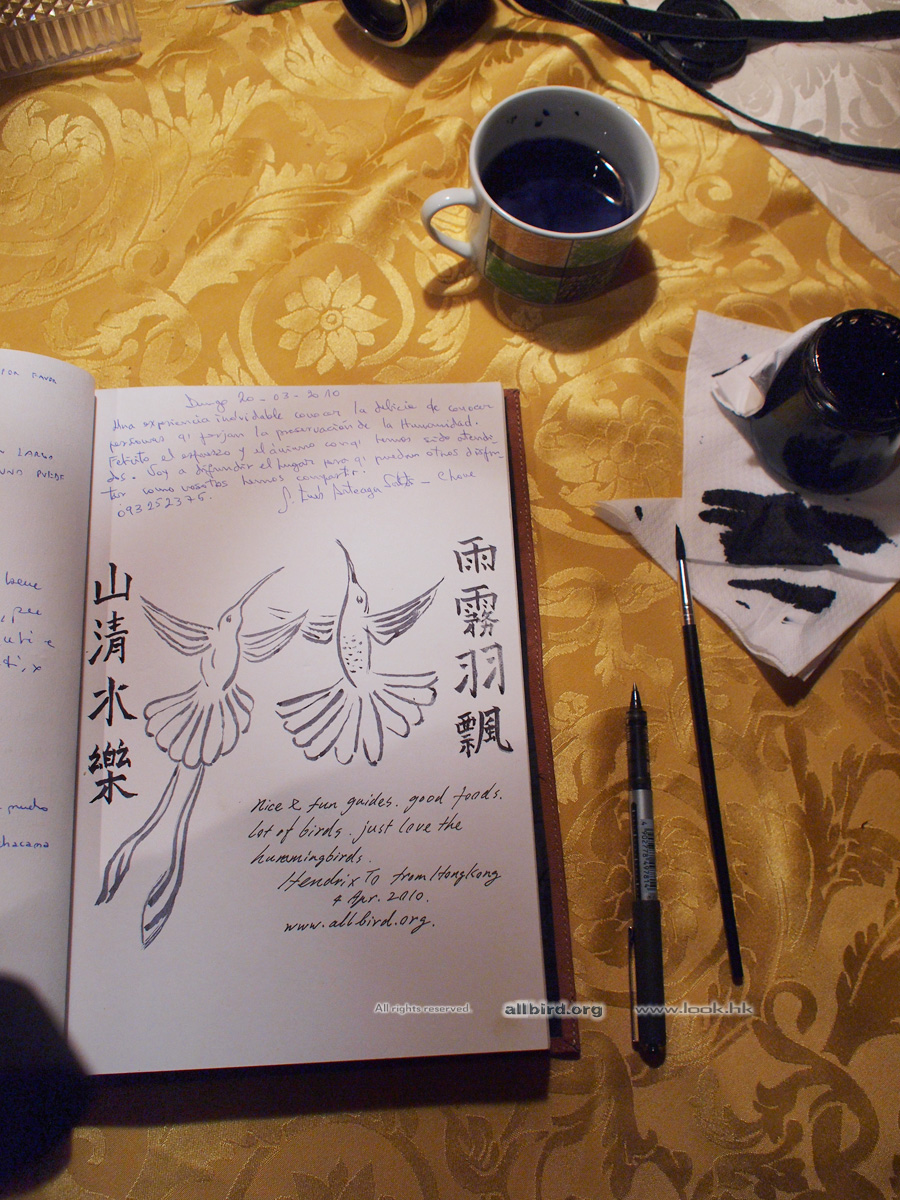 POR FAVOR
LARGA
UNO PUEDE
Dungo 20-03-2010
Una experiencia inolvidable conocer la delicia de conocer
personas q' forjan la preservación de la Humanidad.
Felicito el esfuerzo y el ánimo con q' hemos sido atendi-
dos. Voy a difundir el lugar para q' puedan otros disfru-
tar como vosotros hemos compartir.
093252375.
Luis Arteaga
山清水樂
雨霧羽飄
Nice & fun guides. good foods.
lot of birds. just love the
hummingbirds.
Hendrix To from Hongkong
4 Apr. 2010.
www.allbird.org.
All rights reserved. allbird.org www.look.hk